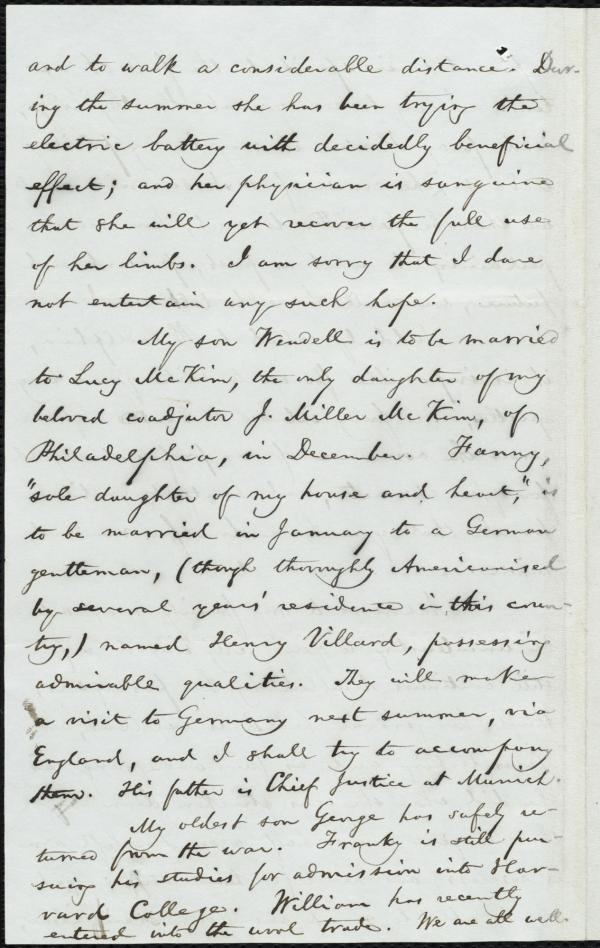 and to walk a considerable distance. Dur-
ing the summer she has been trying the
electric battery with decidedly beneficial
effect; and her physician is sanguine
that she will yet recover the full use
of her limbs. I am sorry that I dare
not entertain any such hope.
My son Wendell is to be married
to Lucy McKim, the only daughter of my
beloved coadjutor J. Miller McKim, of
Philadelphia, in December. Fanny,
"sole daughter of my house and heart," is
to be married in January to a German
gentleman, (though thoroughly Americanised
by several years' residence in this coun-
try,) named Henry Villard, possessing
admirable qualities. They will make
a visit to Germany next summer, via
England, and I shall try to accompany
them. His father is Chief Justice at Munich.
My oldest son George has safely re-
turned from the war. Franky is still pur-
suing his studies for admission into Har-
vard College. William has recently
entered into the wool trade. We are all well.